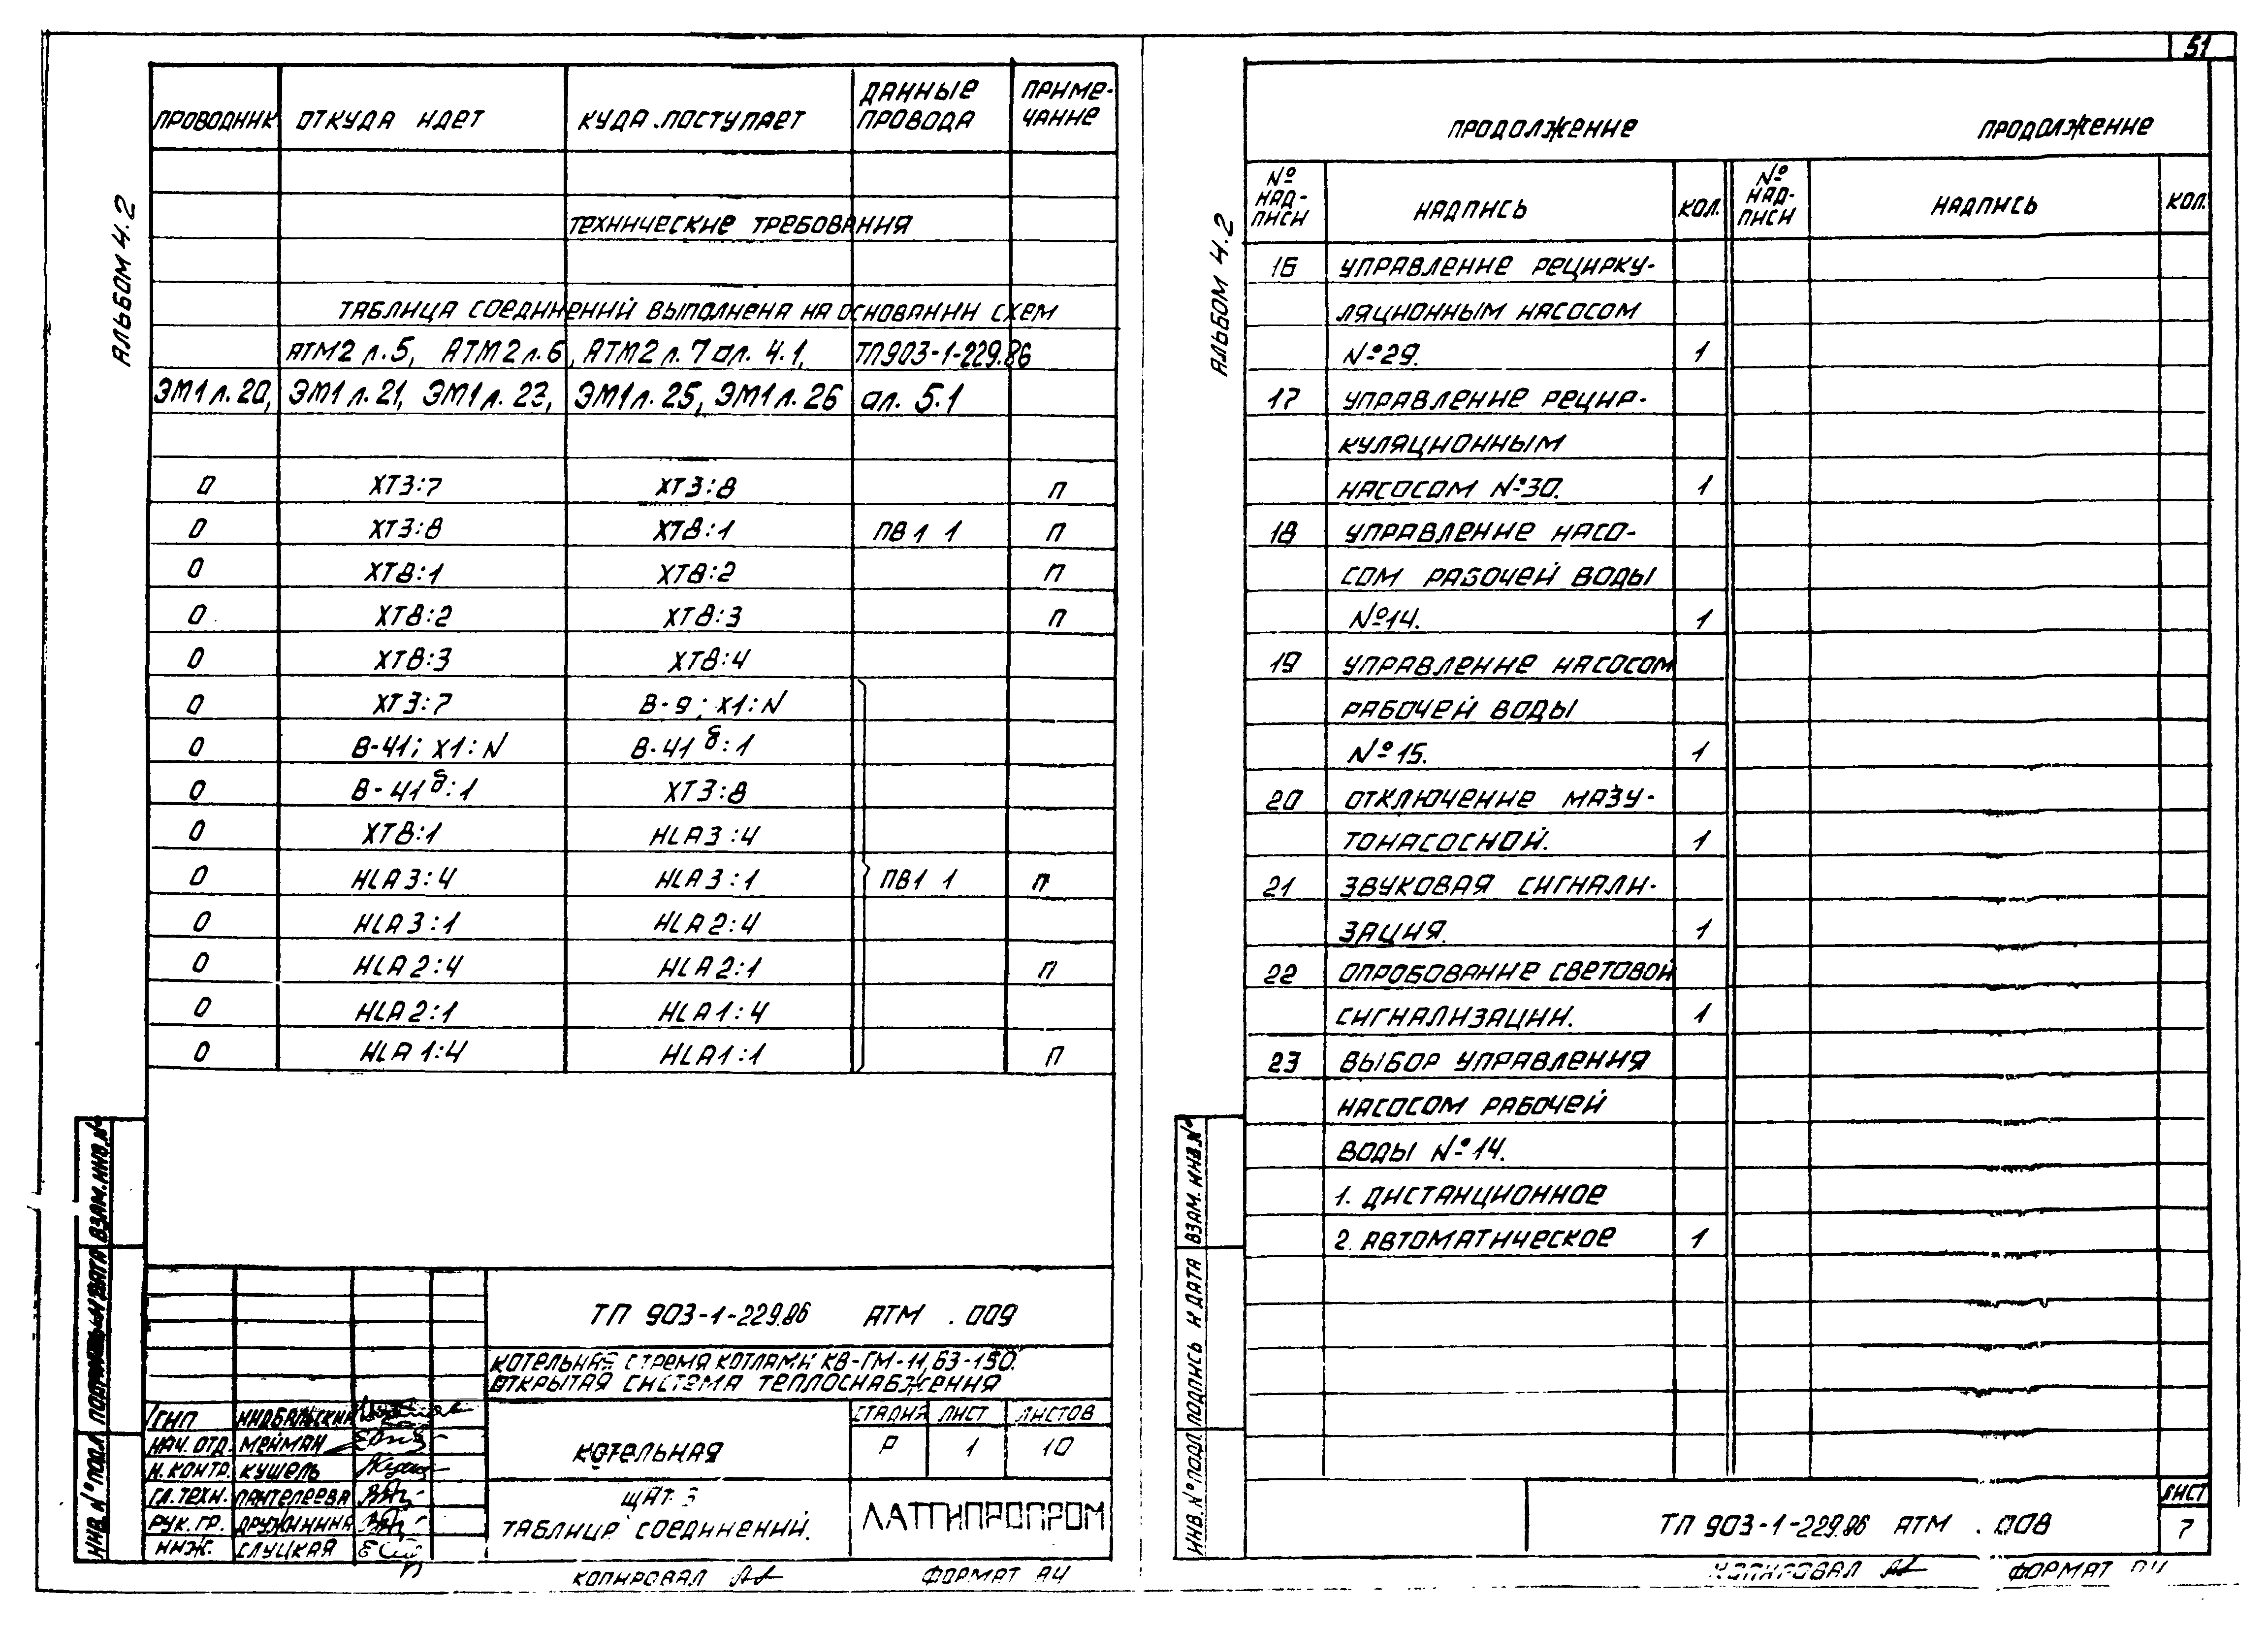 51
АЛЬБОМ 4.2
ПРОВОДНИК ОТКУДА ИДЕТ КУДА ПОСТУПАЕТ ДАННЫЕ ПРОВОДА ПРИМЕ- ЧАНИЕ
ТЕХНИЧЕСКИЕ ТРЕБОВАНИЯ
ТАБЛИЦА СОЕДИНЕНИЙ ВЫПОЛНЕНА НА ОСНОВАНИИ СХЕМ
АТМ2 л.5, АТМ2 л.6, АТМ2 л.7 ал. 4.1, ТП903-1-229.86
ЭМ1 л.20, ЭМ1 л.21, ЭМ1 л.23, ЭМ1 л.25, ЭМ1 л.26 ал. 5.1
0 ХТ3:7 ХТ3:8 П
0 ХТ3:8 ХТ8:1 ПВ1 1 П
0 ХТ8:1 ХТ8:2 П
0 ХТ8:2 ХТ8:3 П
0 ХТ8:3 ХТ8:4
0 ХТ3:7 В-9; Х1:N
0 В-41; Х1:N В-41б:1
0 В-41б:1 ХТ3:8
0 ХТ8:1 HLA3:4
0 HLA3:4 HLA3:1 ПВ1 1 П
0 HLA3:1 HLA2:4
0 HLA2:4 HLA2:1 П
0 HLA2:1 HLA1:4
0 HLA1:4 HLA1:1 П
ТП 903-1-229.86 АТМ .009
КОТЕЛЬНАЯ С ТРЕМЯ КОТЛАМИ КВ-ГМ-11,63-150.
ОТКРЫТАЯ СИСТЕМА ТЕПЛОСНАБЖЕНИЯ
ГИП
НАЧ. ОТД. МЕЙМАН
Н. КОНТР. КУШЕЛЬ
ГЛ. ТЕХН. ПАНТЕЛЕЕВА
РУК. ГР. ДРУЖИНИНА
ИНЖ. СЛУЦКАЯ
КОТЕЛЬНАЯ
СТАДИЯ ЛИСТ ЛИСТОВ
Р 1 10
ЩИТ 3
ТАБЛИЦА СОЕДИНЕНИЙ.
ЛАТГИПРОПРОМ
КОПИРОВАЛ ФОРМАТ А4
ИНВ. № ПОДЛ. ПОДПИСЬ И ДАТА ВЗАМ. ИНВ. №
АЛЬБОМ 4.2
ПРОДОЛЖЕНИЕ ПРОДОЛЖЕНИЕ
№ НАД- ПИСИ НАДПИСЬ КОЛ. № НАД- ПИСИ НАДПИСЬ КОЛ.
16 УПРАВЛЕНИЕ РЕЦИРКУ-
ЛЯЦИОННЫМ НАСОСОМ
№29. 1
17 УПРАВЛЕНИЕ РЕЦИР-
КУЛЯЦИОННЫМ
НАСОСОМ №30. 1
18 УПРАВЛЕНИЕ НАСО-
СОМ РАБОЧЕЙ ВОДЫ
№14. 1
19 УПРАВЛЕНИЕ НАСОСОМ
РАБОЧЕЙ ВОДЫ
№15. 1
20 ОТКЛЮЧЕНИЕ МАЗУ-
ТОНАСОСНОЙ. 1
21 ЗВУКОВАЯ СИГНАЛИ-
ЗАЦИЯ. 1
22 ОПРОБОВАНИЕ СВЕТОВОЙ
СИГНАЛИЗАЦИИ. 1
23 ВЫБОР УПРАВЛЕНИЯ
НАСОСОМ РАБОЧЕЙ
ВОДЫ №14.
1. ДИСТАНЦИОННОЕ
2. АВТОМАТИЧЕСКОЕ 1
ТП 903-1-229.86 АТМ .008
ЛИСТ
7
КОПИРОВАЛ ФОРМАТ А4
ИНВ. № ПОДЛ. ПОДПИСЬ И ДАТА ВЗАМ. ИНВ. №